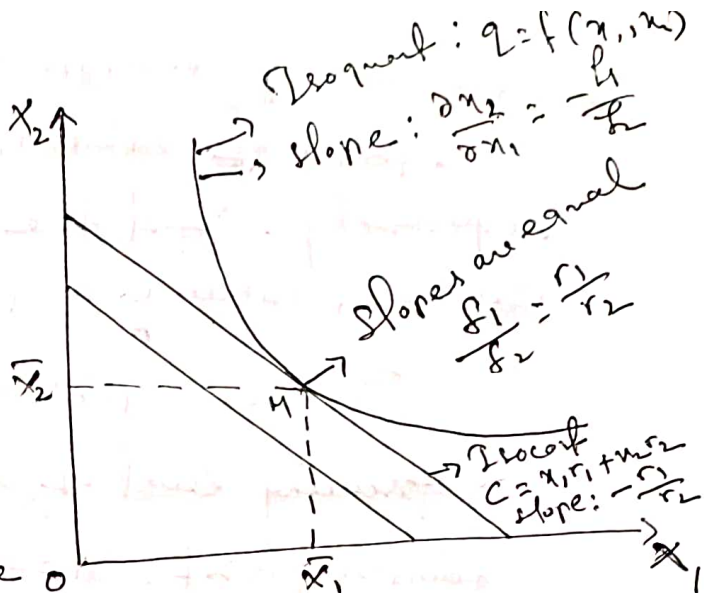 Isoquant : q = f (x₁, x₂)
slope : ∂x₂/∂x₁ = -f₁/f₂
X₂
slopes are equal
f₁/f₂ = r₁/r₂
x̄₂
M
Isocost
C = x₁r₁ + x₂r₂
slope: -r₁/r₂
O
x̄₁
X₁